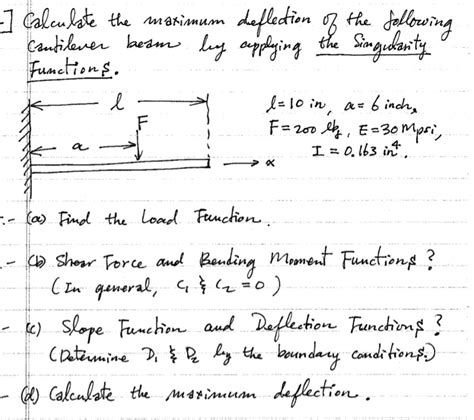 -] Calculate the maximum deflection of the following
cantilever beam by applying the Singularity
Functions.
l
l=10 in, a=6 inch,
F
F=200 lb, E=30 Mpsi,
a
I = 0.163 in⁴.
x
- (a) Find the Load Function.
- (b) Shear Force and Bending Moment Functions?
(In general, C₁ & C₂ = 0)
- (c) Slope Function and Deflection Functions?
(Determine D₁ & D₂ by the boundary conditions.)
- (d) Calculate the maximum deflection.